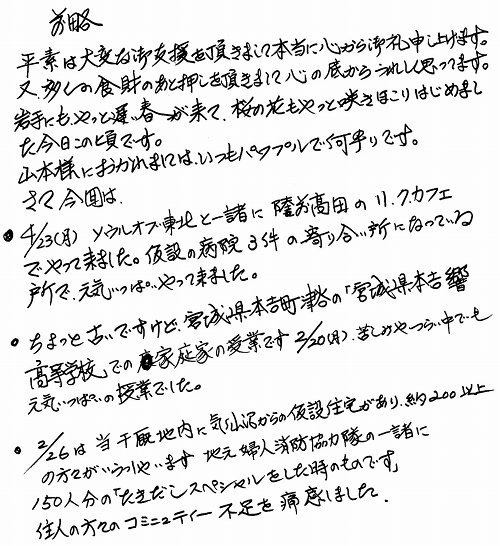 前略
平素は大変な御支援を頂きまして本当に心から御礼申し上げます。
又、多くの食財のあと押しを頂きまして心の底からうれしく思ってます。
岩手にもやっと遅い春が来て、桜の花もやっと咲きほこりはじめまし
た今日この頃です。
山本様におかれましては、いつもパワフルで何よりです。
さて今回は、
● 4/23(月) ソウルオブ東北と一諸に陸前高田のリ.ク.カフェ
でやって来ました。仮設の病院3件の寄り合い所になっている
所で、元気いっぱいやって来ました。
● ちょっと古いですけど、宮城県本吉町津谷の「宮城県本吉響
高等学校」での家庭家の授業です 2/20(月)、苦しみやつらい中でも
元気いっぱいの授業でした。
● 2/26は当千厩地内に気仙沼からの仮設住宅があり、約200以上
の方々がいらっしゃいます 地元婦人消防協力隊の一諸に
150人分の「たきだしスペシャルをした時のものです」
住人の方々のコミニュティー不足を痛感しました.